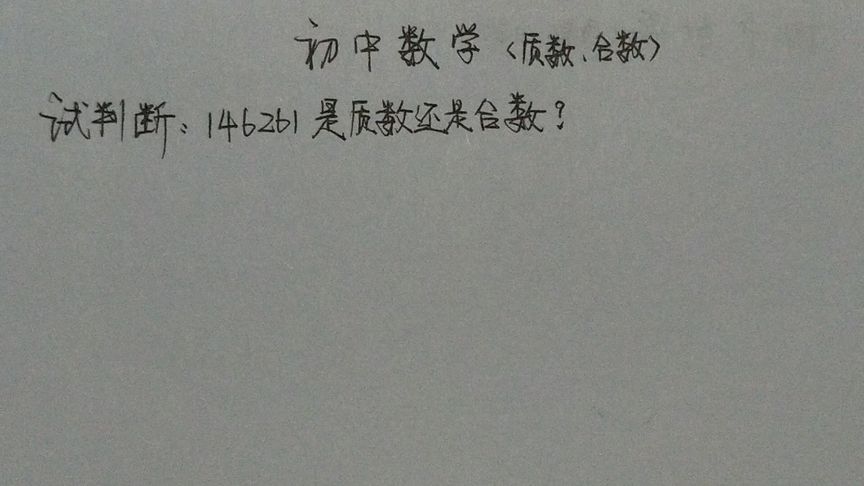 初中数学〈质数、合数〉
试判断：146261是质数还是合数？